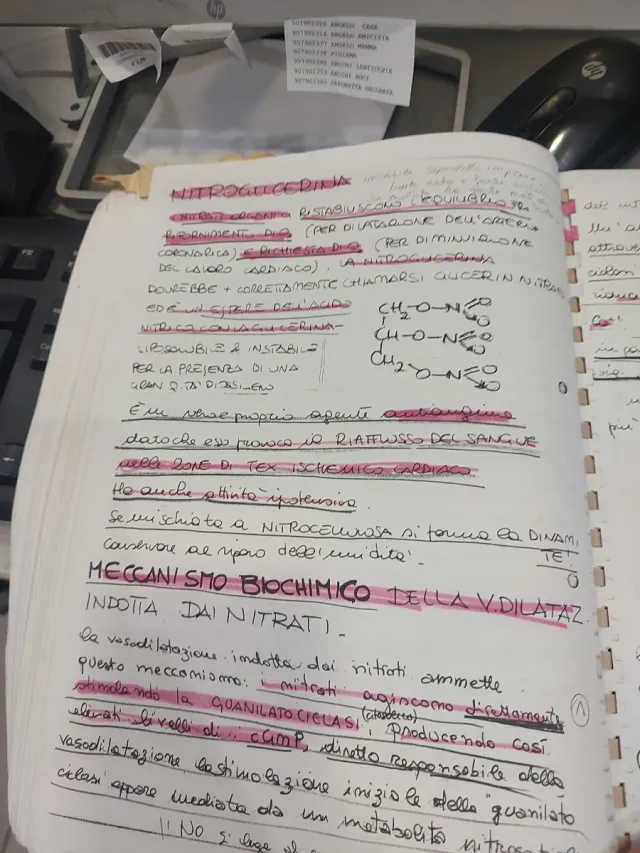 hp
507902328 ANGELO CASA
507902314 ANGELO AMICIZIA
507902377 ANGELO MAMMA
SACCHI LENTICCHIA
SACCHI NOCI
SAPONETTA DECORATA
NITROGLICERINA
NITRATI ORGANICI RISTABILISCONO L'EQUILIBRIO TRA
RIFORNIMENTO DI O2 (PER DILATAZIONE DELL'ARTERIA
CORONARICA) E RICHIESTA DI O2 (PER DIMINUZIONE
DEL LAVORO CARDIACO). LA NITROGLICERINA
DOVREBBE + CORRETTAMENTE CHIAMARSI GLICERIN NITRATO
ED È UN ESTERE DELL'ACIDO
NITRICO CON LA GLICERINA-
LIPOSOLUBILE & INSTABILE
PER LA PRESENZA DI UNA
GRAN Q.TÀ DI
CH2-O-N O O
CH-O-N O O
CH2 O-N O O
È un vero e proprio agente antiangina
dato che esso provoca la RIAFFLUSSO DEL SANGUE
nelle ZONE DI TEX ISCHEMICO CARDIACO
Ha anche attività ipotensiva.
Se mischiata a NITROCELLULOSA si forma la DINAMI
TE!
Conservare al riparo dell'umidità.
MECCANISMO BIOCHIMICO DELLA V.DILATAZ.
INDOTTA DAI NITRATI-
la vasodilatazione indotta dai nitrati ammette
questo meccanismo: i nitrati agiscono direttamente
stimolando la GUANILATO CICLASI, producendo così
elevati livelli di cGMP, diretto responsabile della
vasodilatazione la stimolazione iniziale della "guanilato
ciclasi appare mediata da un metabolita